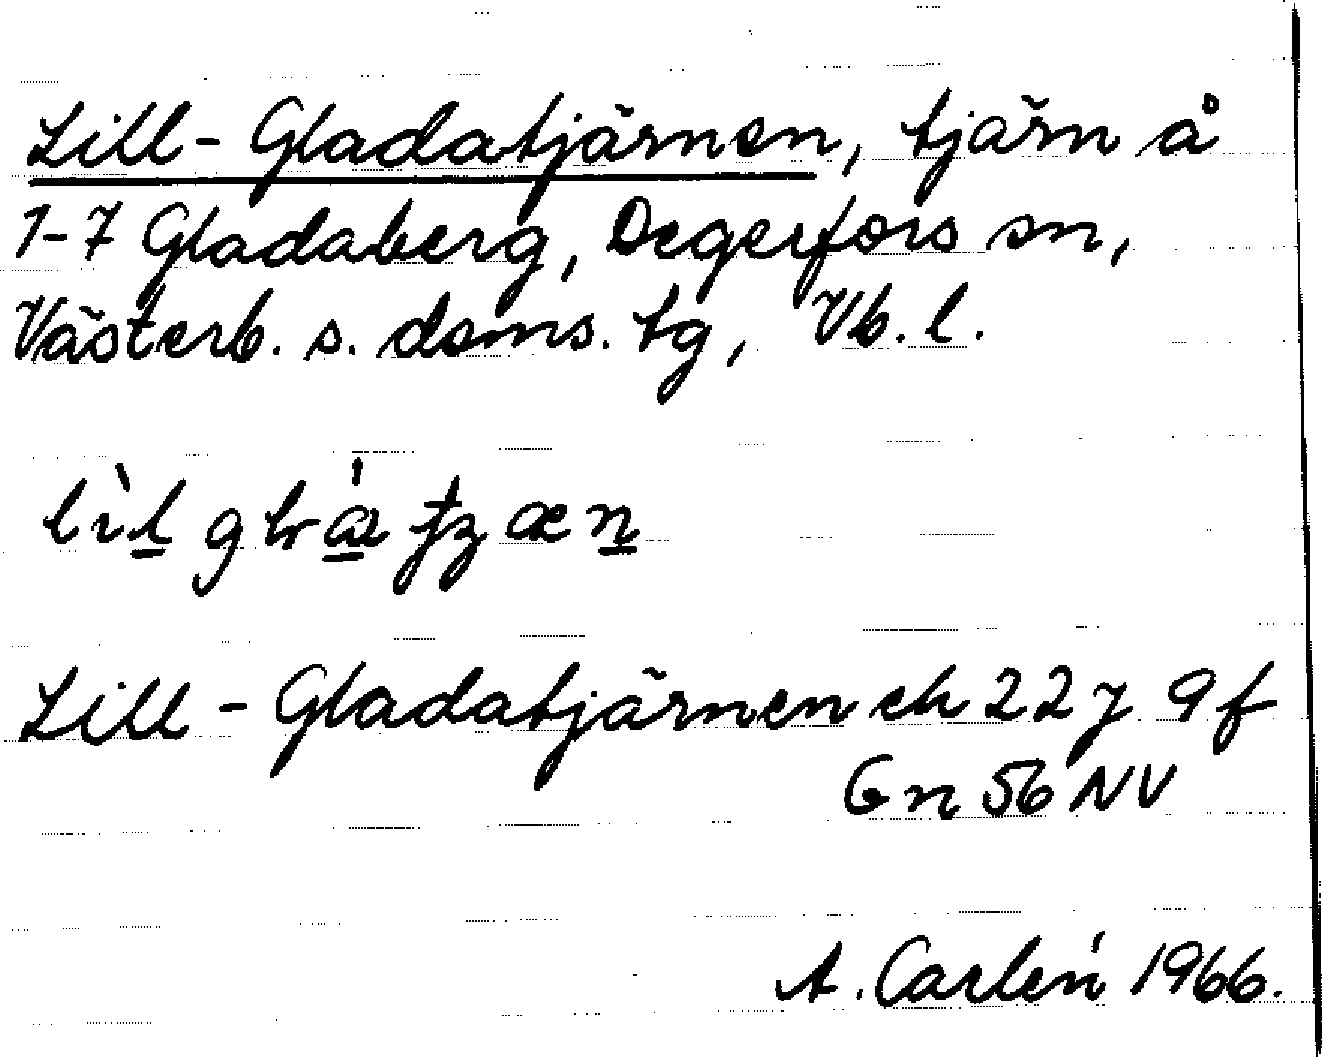 Lill-Gladatjärnen, tjärn å
1-7 Gladaberg, Degerfors sn,
Västerb. s. doms. tg, Vb. l.
Lill-Gladatjärnen ek 22 J 9 f
Gn 56 NV
A. Carlén 1966.